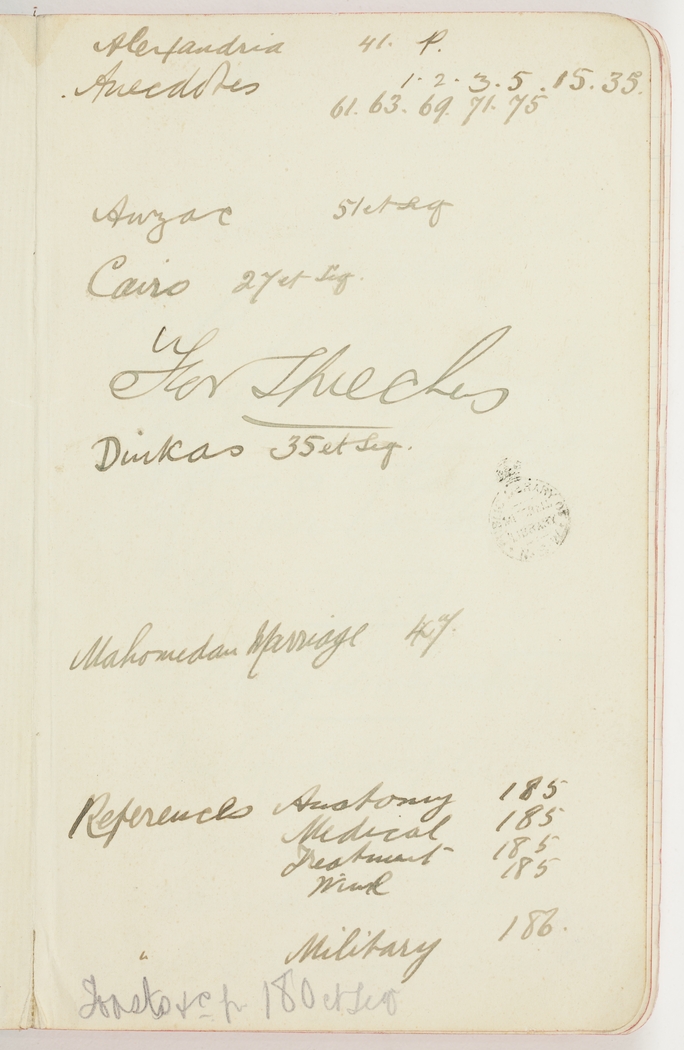 Alexandria 41. P.
Anecdotes 1. 2. 3. 5. 15. 35.
61. 63. 69. 71. 75
Anzac 51 et seq
Cairo 27 et seq.
"For Speeches
Dinkas 35 et seq.
Mahomedan Marriage 47.
References Anatomy 185
Medical 185
Treatment 185
185
" Military 186.
Toasts &c p 180 et seq